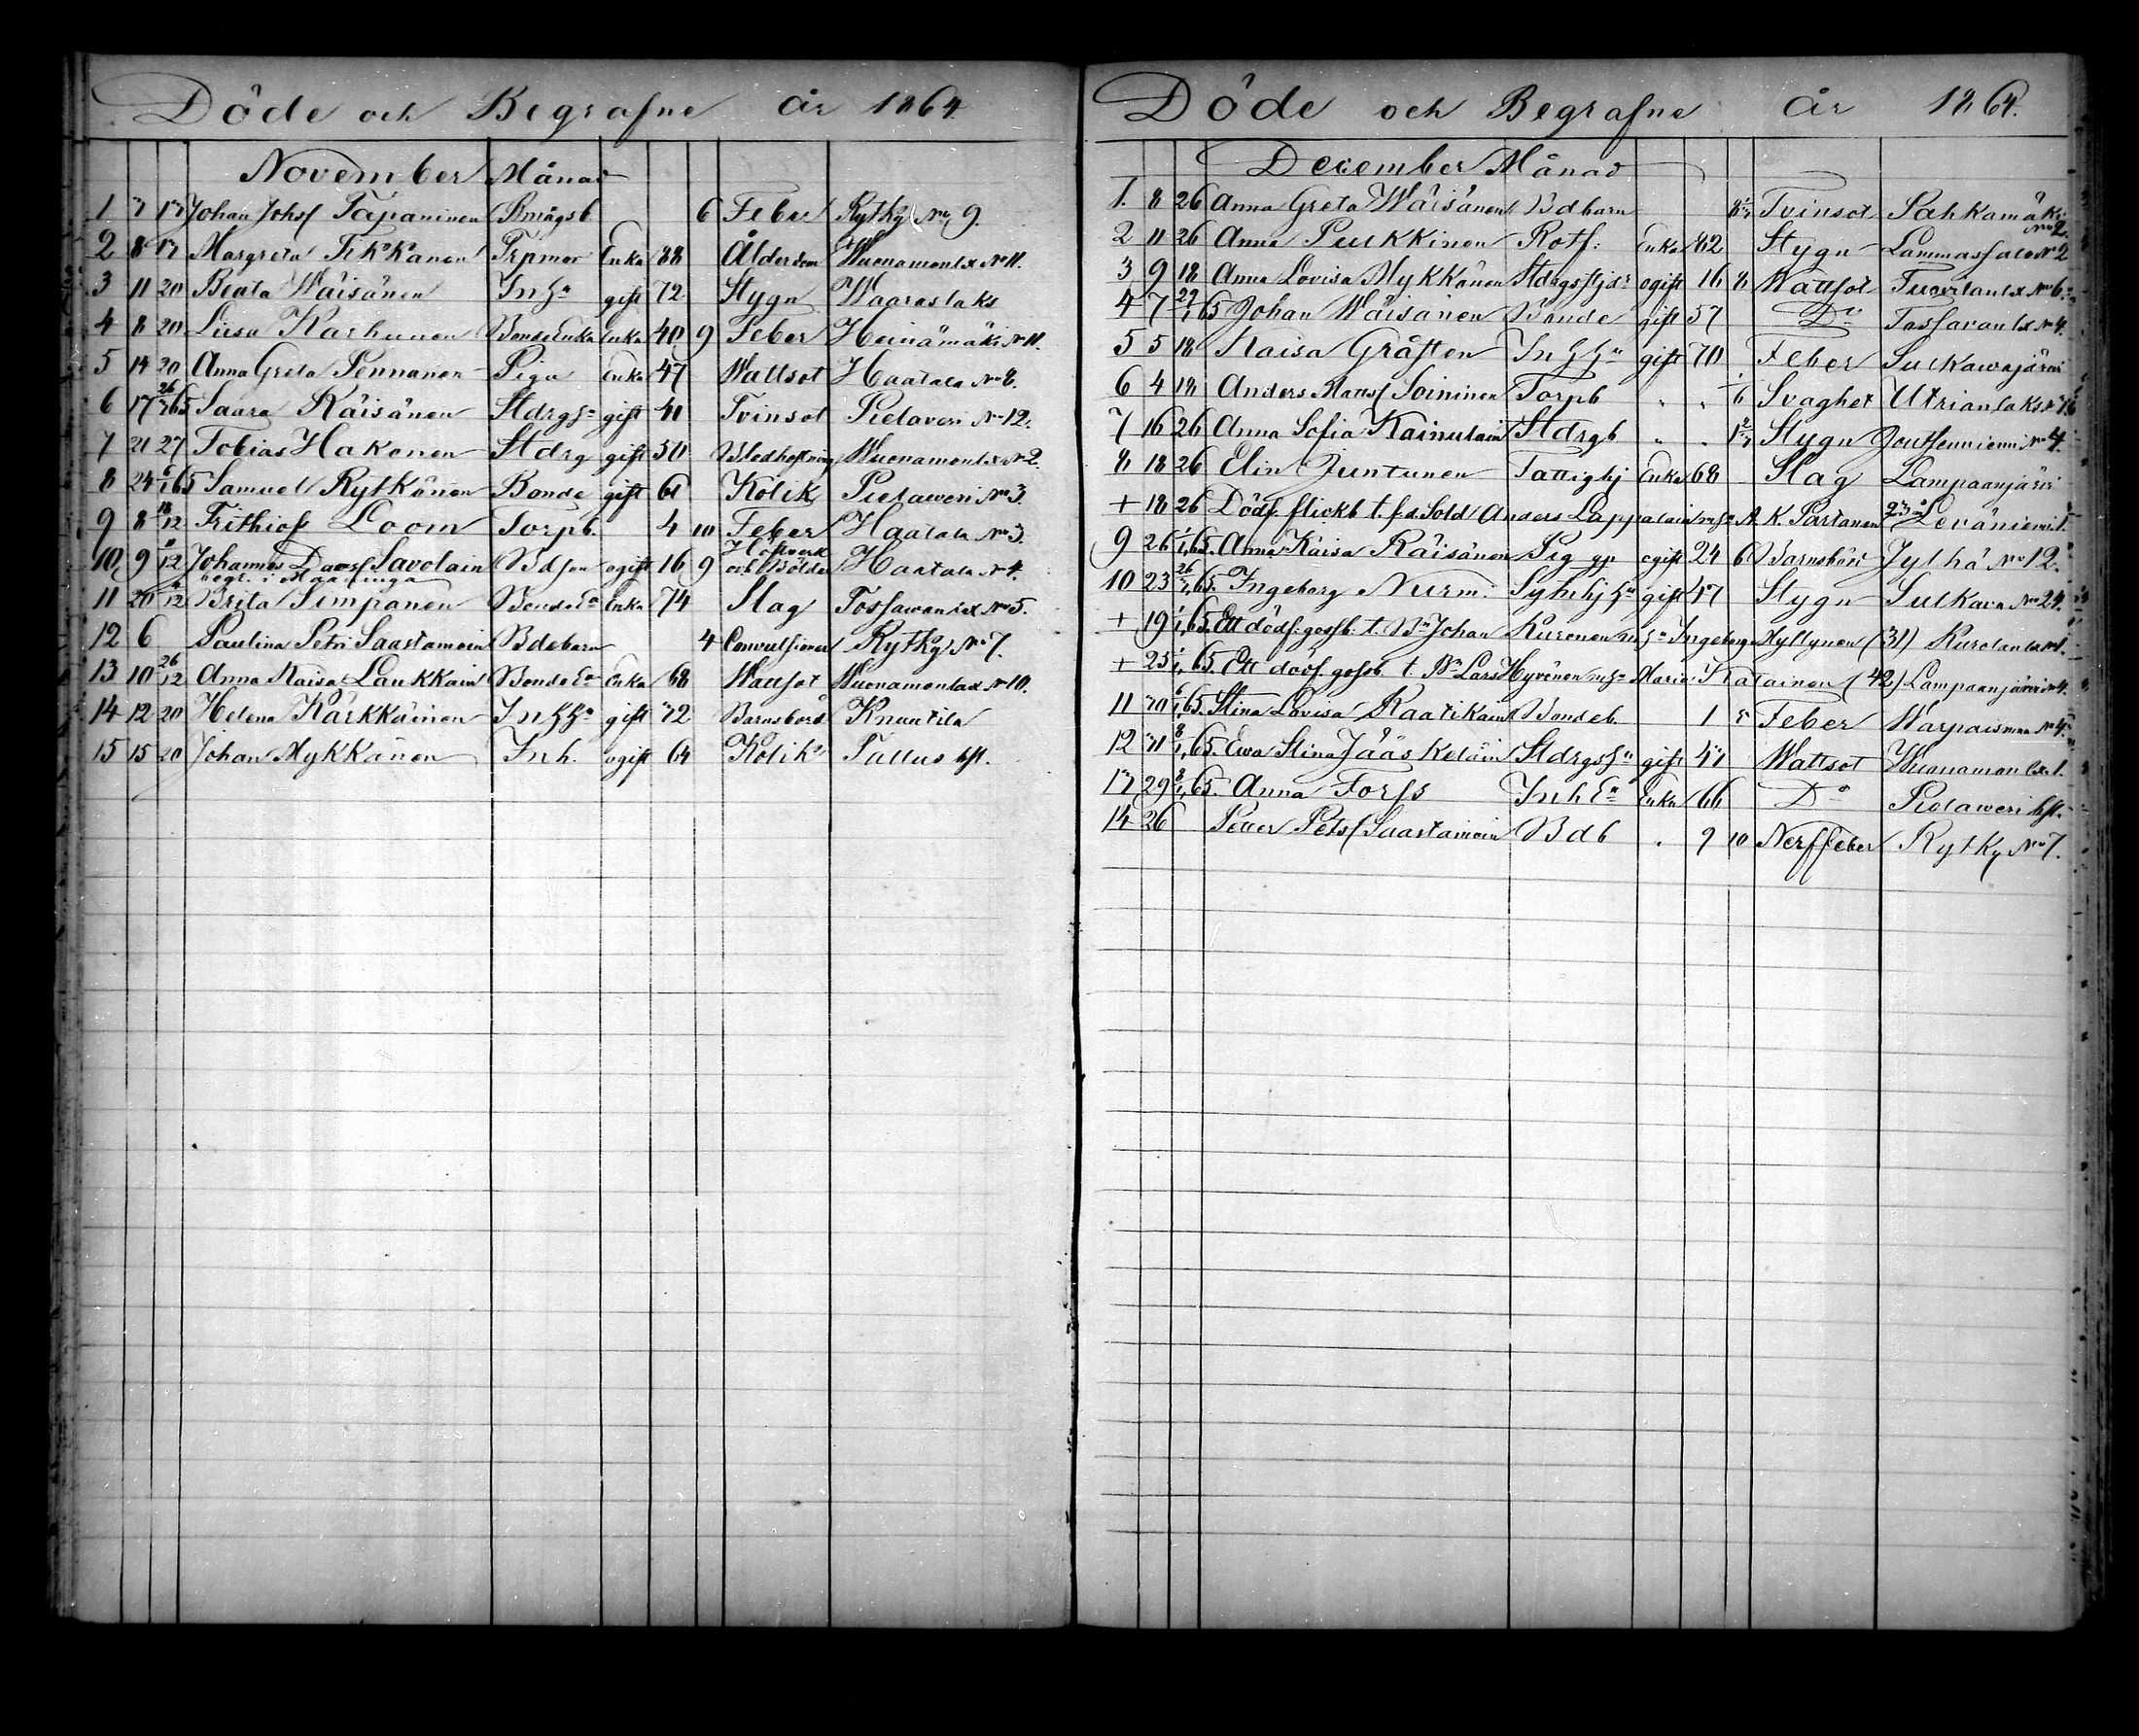 Döde och Begrafne år 1864.
November Månad
1 3 13 Johan Johsf Tapaninen 6 Feber Rytky No 9.
2 8 13 Margreta Tikkanen Trpmor Enka 88 Ålderdom Wuonamonlax No 11.
3 11 20 Beata Wäisänen gift 72 Stygn Waaraslaks
4 8 20 Liisa Karhunen Bonde Enka Enka 40 9 Feber Heinämäki No 11.
5 14 20 Anna Greta Pennanen Piga Enka 47 Wattsot Haatala No 8.
6 17 26/3 65 Saara Räisänen gift 41 Tvinsot Pielaveri No 12.
7 21 27 Tobias Hakonen Stdrg gift 50 Blodhostning Wuonamonlx No 2.
8 24 6/1 65 Samuel Rytkönen Bonde gift 61 Kolik Pielaweri No 3.
9 8 18/12 Frithiof Loom Torpb. 4 10 Feber Haatala No 3.
10 9 12 Johannes Savolain Bdson ogift 16 9 Höftverk och Bölder Haatala No 4.
begr. i Maaninga
11 20 12 Brita Simpanen Enka 74 Slag Tossawanlax No 5.
12 6 Paulina Petri Saastamoin Bdebarn 4 Convulsioner Rytky No 7.
13 10 26/12 Anna Kaisa Laukkain Enka 68 Wattsot Wuonamonlax No 10.
14 12 20 Helena Kärkkäinen gift 72 Barnsbörd Knuutila
15 15 20 Johan Mykkänen Inh. ogift 64 Kolik Tallus
Döde och Begrafne år 1864.
December Månad
1. 8 26 Anna Greta Wäisänen Bdbarn Tvinsot Sahkamäki No 2.
2 11 26 Anna Pulkkinen Rotf: Enka 82 Stygn Lammassalo No 2
3 9 18 Anna Lovisa Mykkänen ogift 16 8 Wattsot No 6.
4 7 65 Johan Wäisänen Bonde gift 57 Do Tossavanlx No 4.
5 5 18 Kaisa Gråsten gift 70 Feber Sulkawajärvi
6 4 18 Anders Soininen Torpb " " 6 Svaghet Utrianlaks
7 16 26 Anna Sofia Kainulain Stdrgb " " Stygn Joutsenniemi No 4.
8 18 26 Elin Juntunen Fattighj Enka 68 Slag Lampaanjärvi
+ 18 26 Dödf. flickb t. f.d. Sold Anders Lappalain A. K. Partanen Leväniemi
9 26 65. Anna Kaisa Räisänen Pig ogift 24 6 Barnsbörd Jylhä No 12.
10 23 65. Ingeborg Nurm. gift 57 Stygn Sulkava No 24.
+ 19 65. Ett dödf. gossb. t. Bn Johan Kuronen Ingeborg Myllynen (31)
+ 25 65. Ett dödf. gossb t Bn Lars Hyvönen Maria Katainen (42) Lampaanjärvi
11 30 65. Stina Lovisa Raatikain Bondeb. 1 5 Feber Warpaisma No 4.
12 31 65. Ewa Stina Jääskeläin gift 47 Wattsot Wuonamonlx 1.
13 29 65. Anna Forss Enka 66 Do Pielaweri
14 26 Petter Petsf Saastamoin Bdb " 9 10 Nerffeber Rytky No 7.